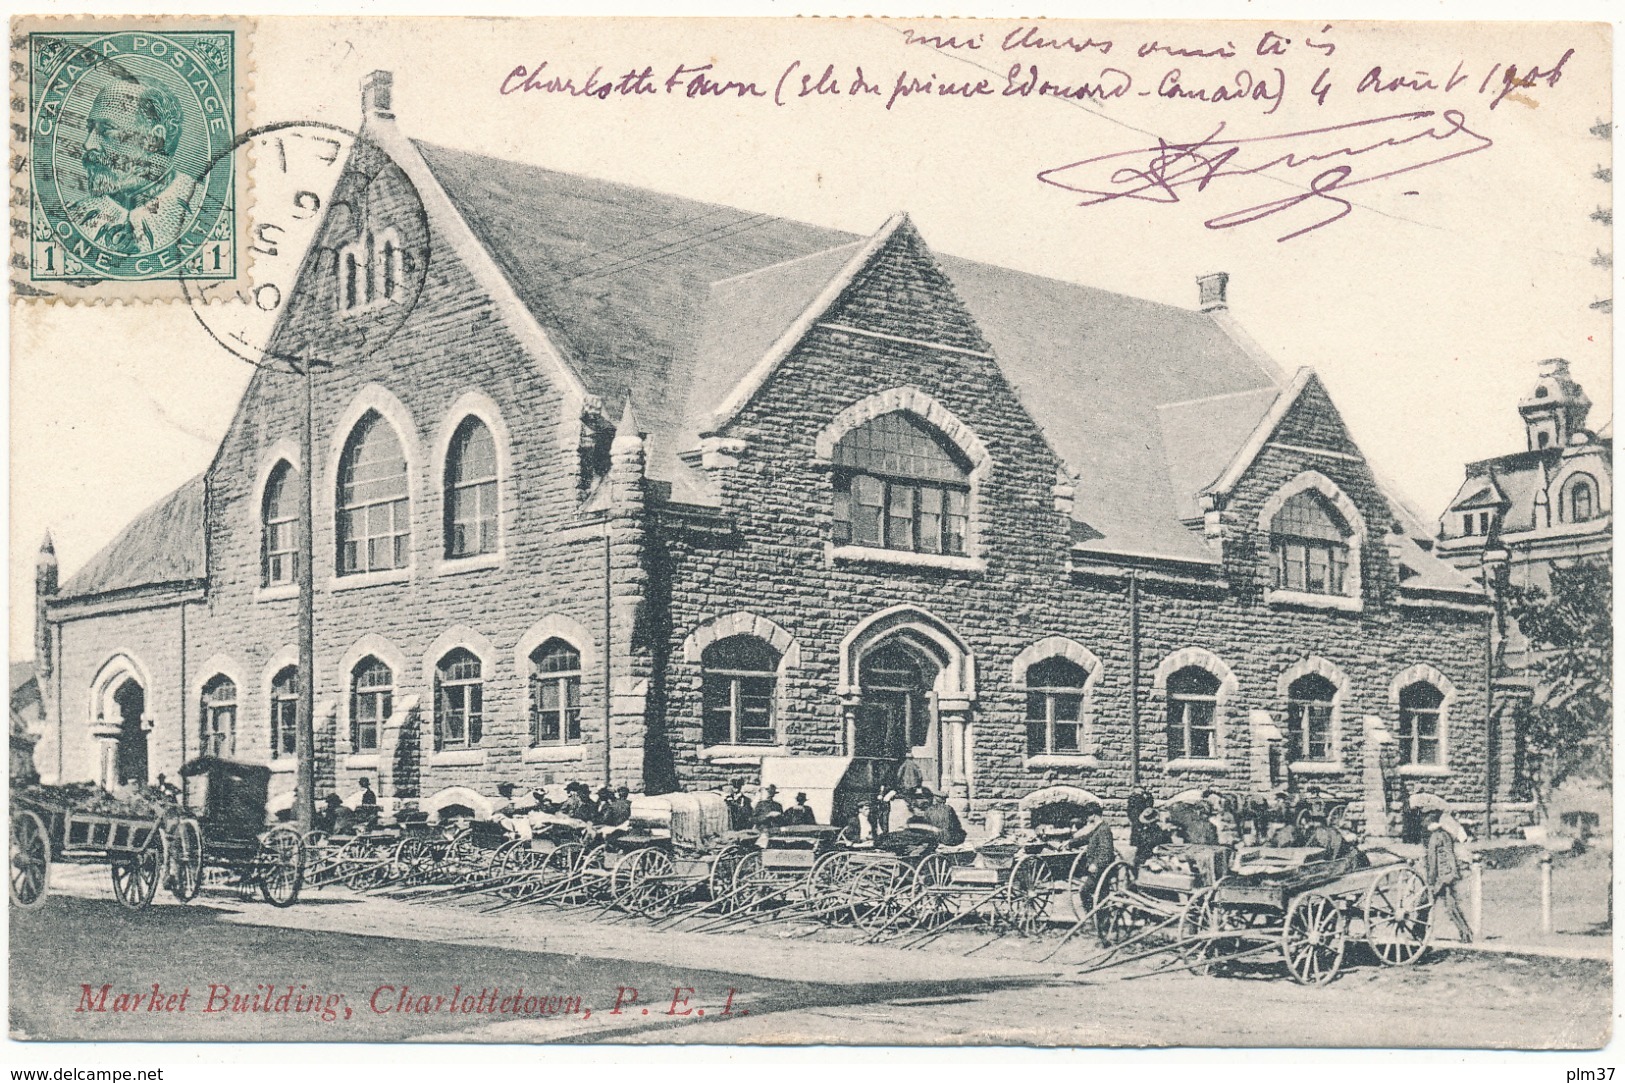 meilleures amitiés
Charlottetown (Ile du prince Edouard - Canada) 4 Août 1906
CANADA POSTAGE
ONE CENT
1 1
Market Building, Charlottetown, P. E. I.
www.delcampe.net
plm37